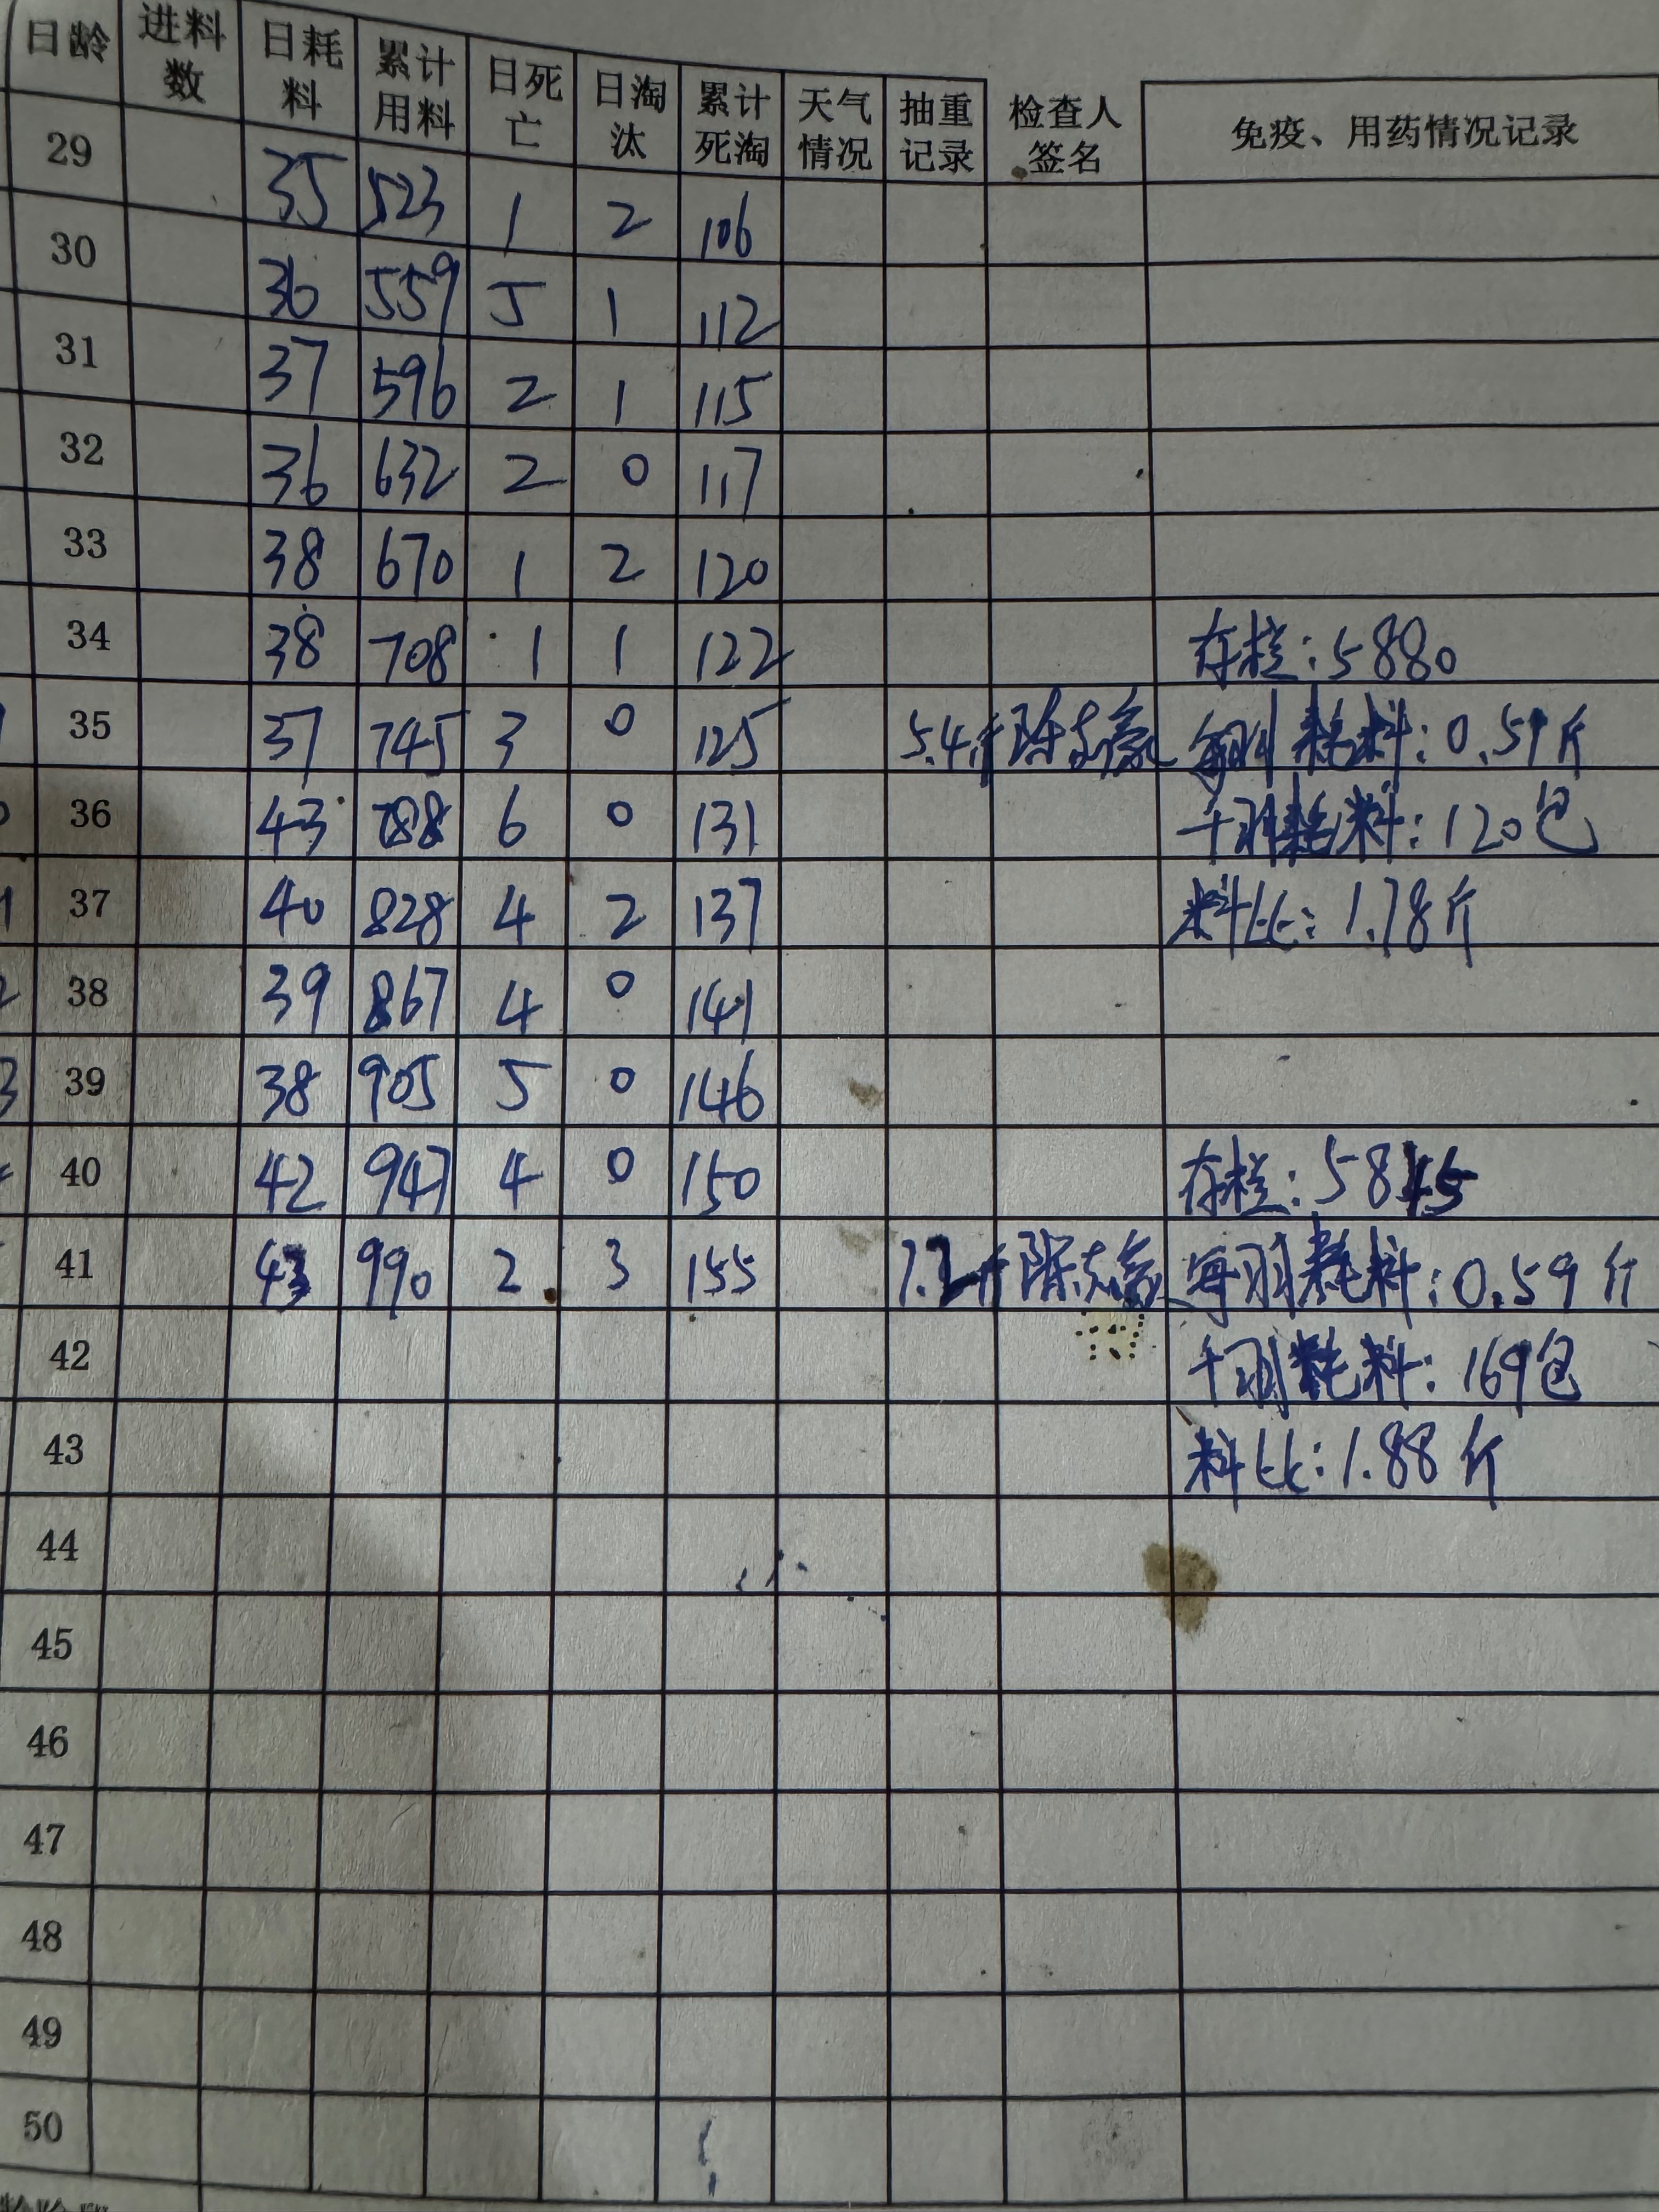 日龄 进料数 日耗料 累计用料 日死亡 日淘汰 累计死淘 天气情况 抽重记录 检查人签名 免疫、用药情况记录
29 35 523 1 2 106
30 36 559 5 1 112
31 37 596 2 1 115
32 36 632 2 0 117
33 38 670 1 2 120
34 38 708 1 1 122 存栏:5880
35 37 745 3 0 125 5.4斤 每羽耗料:0.51斤
36 43 788 6 0 131 千羽耗料:120包
37 40 828 4 2 137 料比:1.78斤
38 39 867 4 0 141
39 38 905 5 0 146
40 42 947 4 0 150 存栏:5845
41 43 990 2 3 155 7.2斤 每羽耗料:0.59斤
42 千羽耗料:169包
43 料比:1.88斤
44
45
46
47
48
49
50